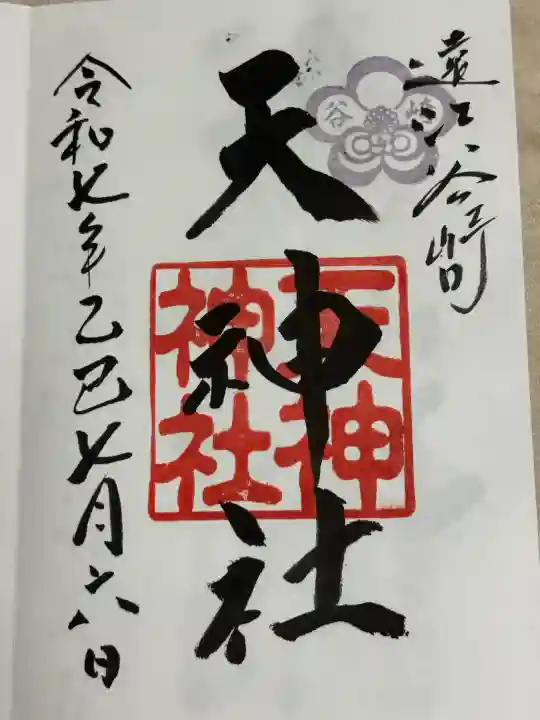 遠江谷崎
谷崎
天神社
天神
神社
令和七年乙巳七月六日